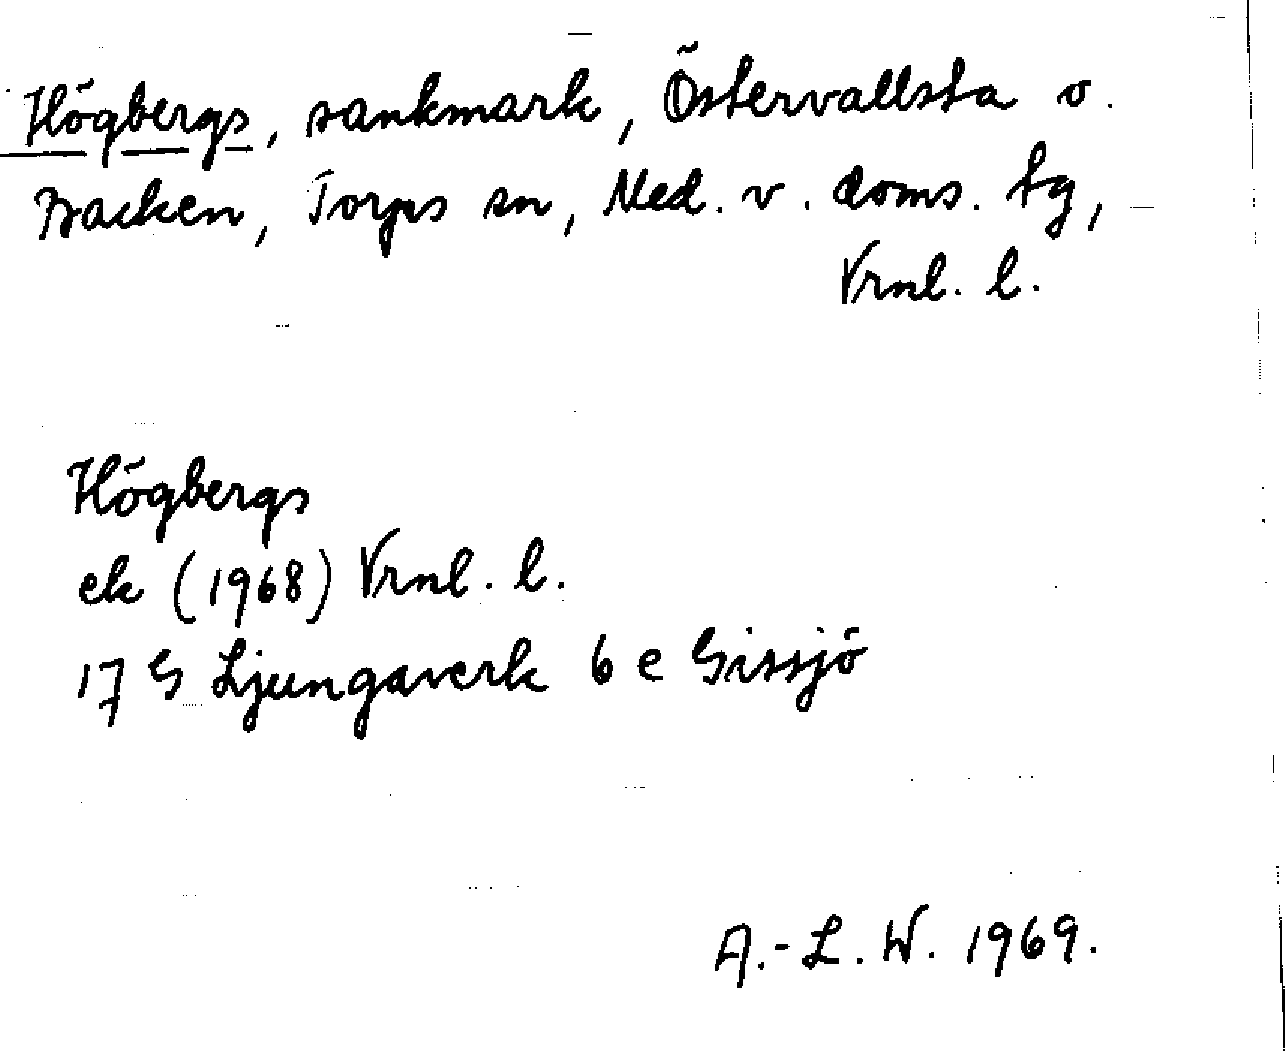 Högbergs, sankmark, Östervallsta o.
Backen, Torps sn, Med. v. doms. tg,
Vrnl. l.
Högbergs
ek (1968) Vrnl. l.
17 G Ljungaverk 6 e Gissjö
A.-L. W. 1969.